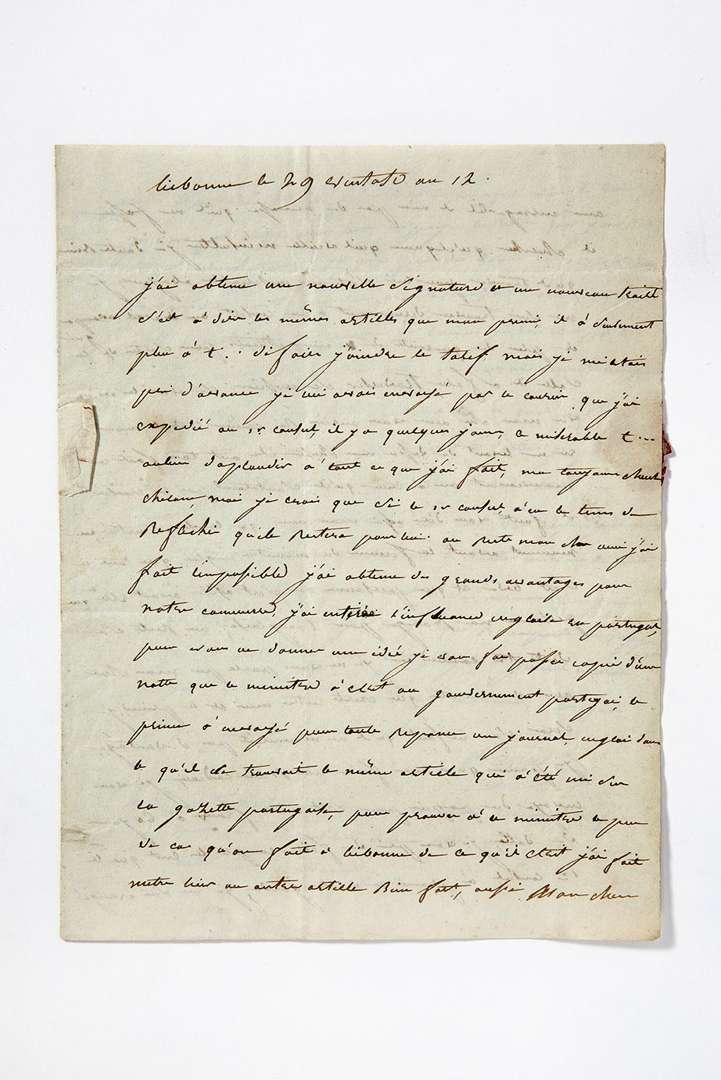 lisbonne le 29 ventose an 12.
j'ai obtenu une nouvelle signature et un nouveau traité
c'est à dire les mêmes articles que mon premi, il à seulement
plu à t... di faire joindre le tarif mais je m'etais
peu d'avance je lui avais envoyé par le courier que j'ai
expedié au 1er consul, il y a quelques jours, le miserable t...
aulieu d'aplaudir à tout ce que j'ai fait, ma toujours cherché
chicane, mais je crois que si le 1er consul à eu le tems de
reflechi qu'elle restera pour lui. au reste mon cher ami j'ai
fait limposible j'ai obtenu des grands avantages pour
notre commerce, j'ai l'influance anglaise en portugal,
pour vous en donner une idée je vous fai passer copie d'une
notte que ce ministre à ecrit au gouvernement portugai, le
prince à envoyé pour toute reponce un journal, anglai dans
le qu'il se trouvait le même article qui à été mi sur
la gazette portugaise, pour prouver à ce ministre le peu
de cas qu'on fait à lisbonne de ce qu'il ecrit j'ai fait
metre hier un autre article bien fort, aussi Mon cher